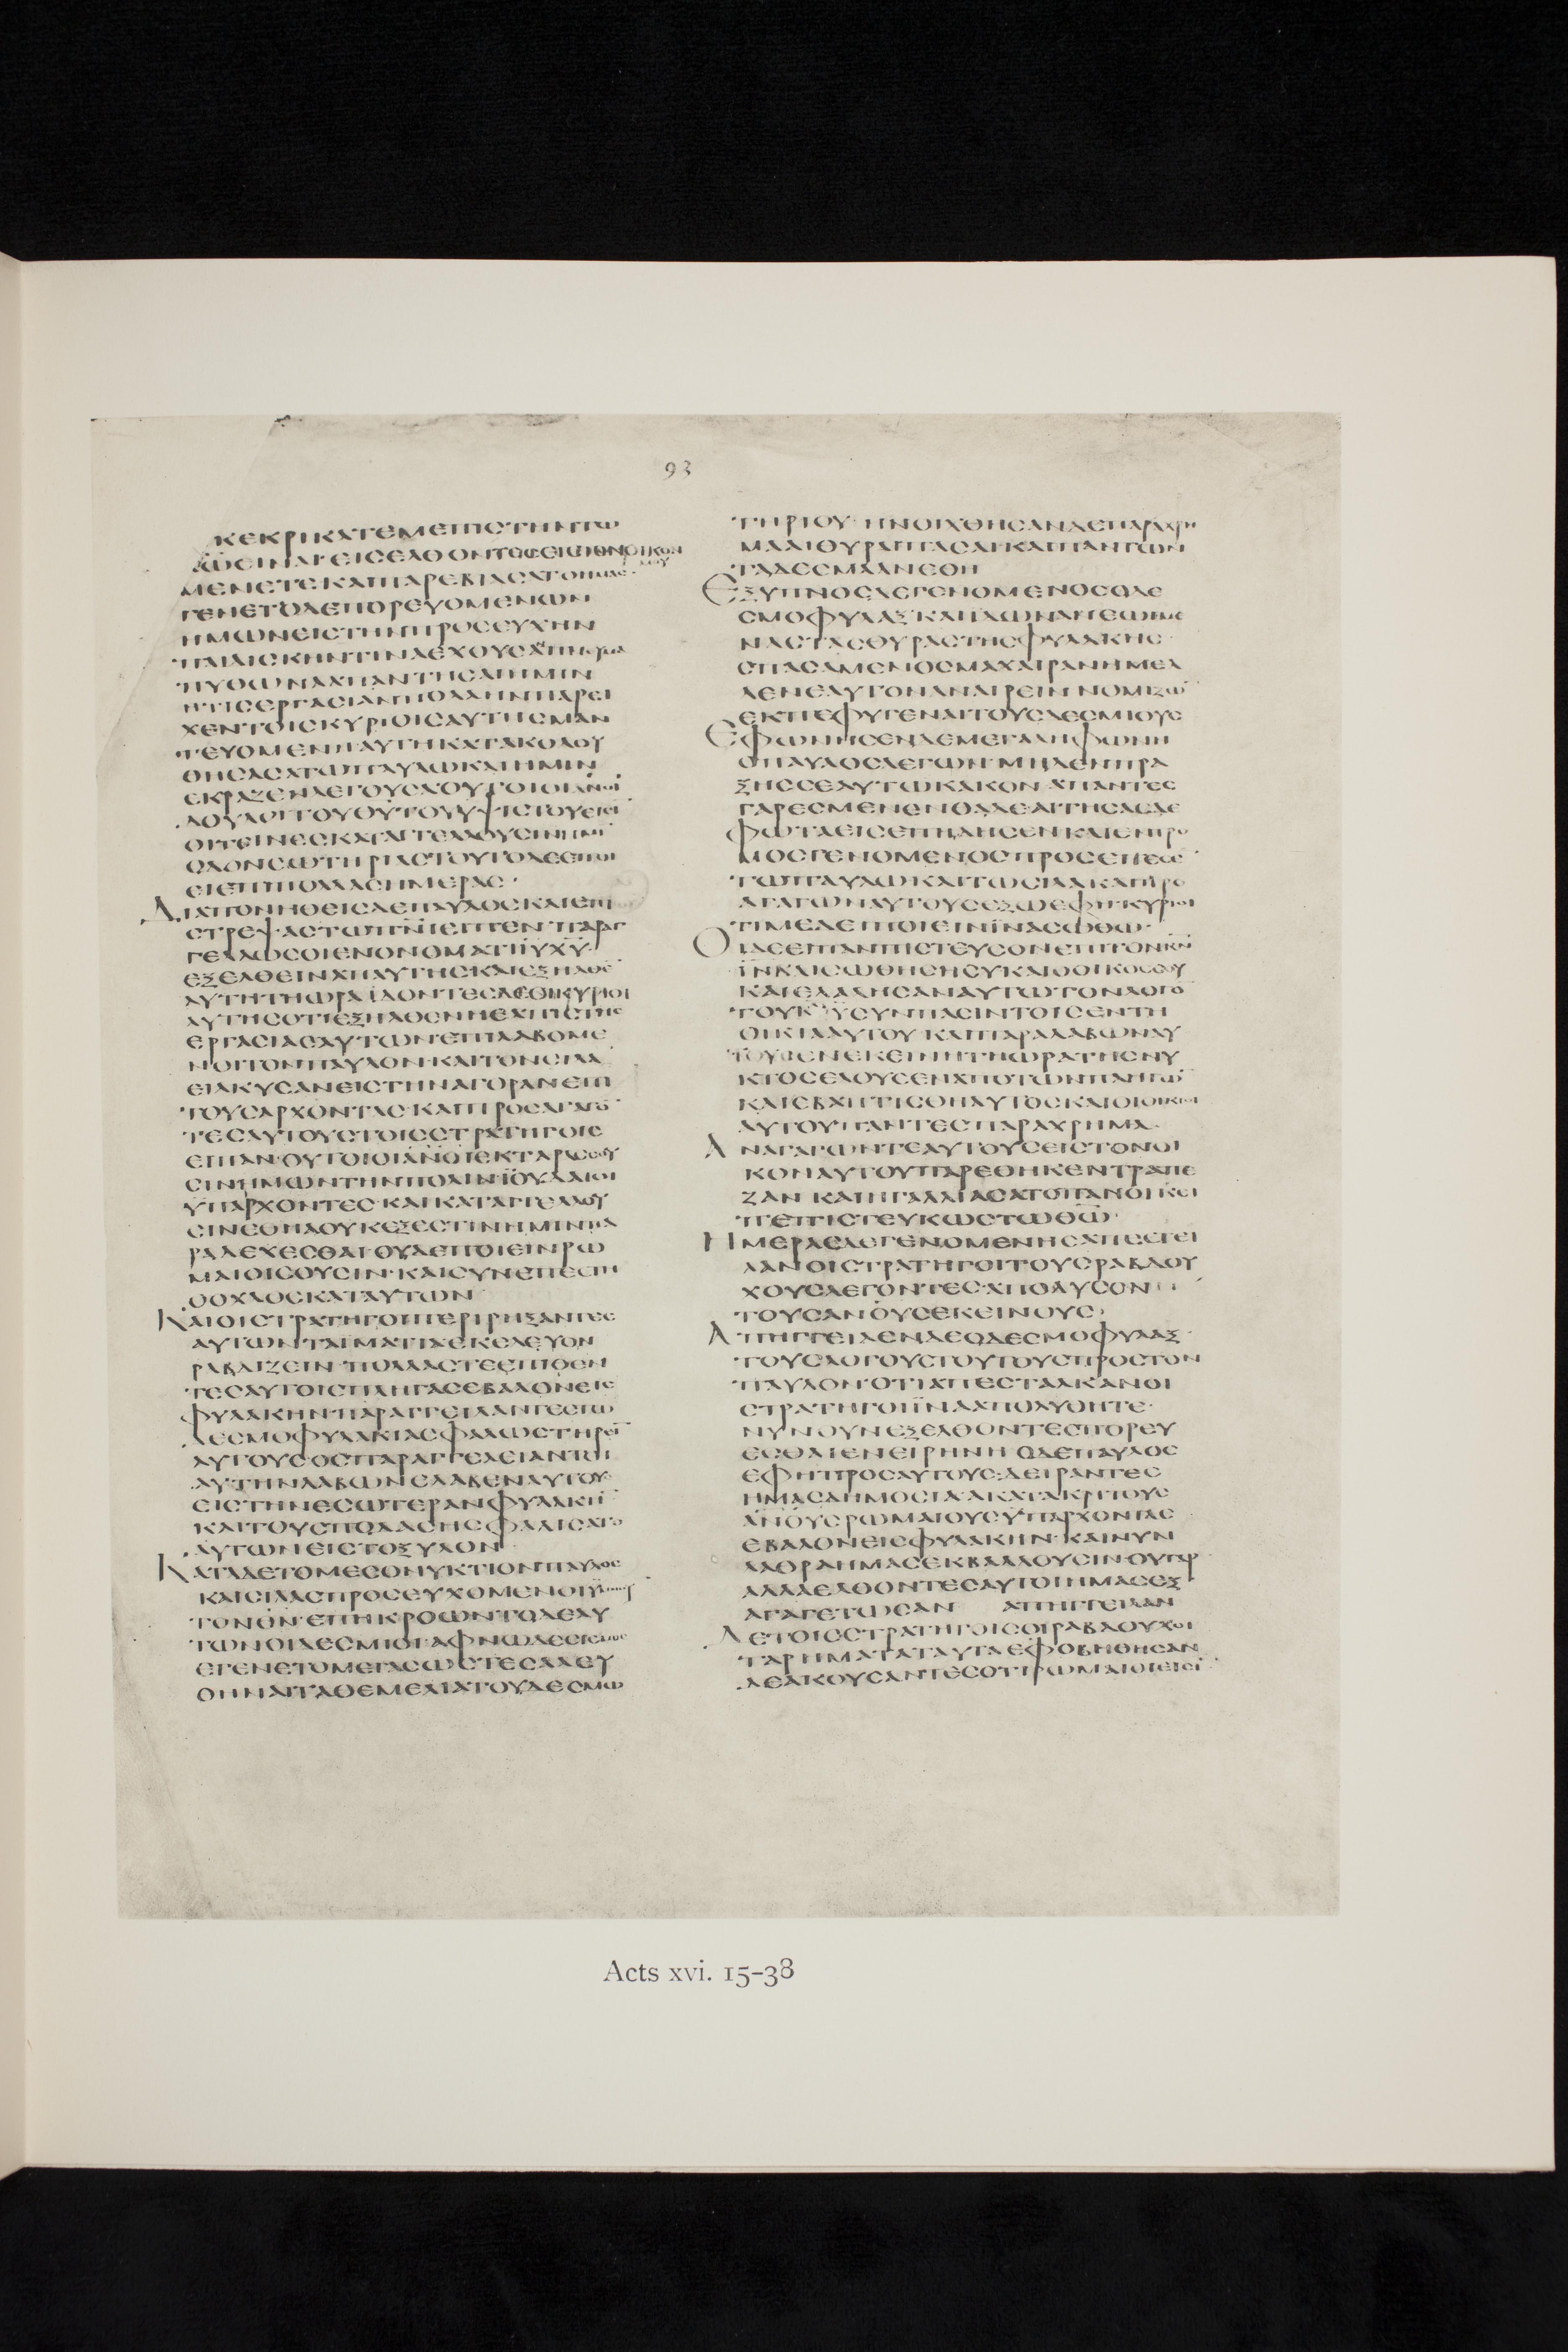 93
ΚΕΚΡΙΚΑΤΕΜΕΠΙϹΤΗΝΤΩ
Κ̅Ω̅ΕΙΝΑΙΕΙϹΕΛΘΟΝΤΕϹΕΙϹΤΟΝΟΙΚΟΝ
ΜΟΥ
ΜΕΝΕΤΕΚΑΙΠΑΡΕΒΙΑϹΑΤΟΗΜΑϹ·
ΓΕΝΕΤΟΔΕΠΟΡΕΥΟΜΕΝΩΝ
ΗΜΩΝΕΙϹΤΗΝΠΡΟϹΕΥΧΗΝ
ΠΑΙΔΙϹΚΗΝΤΙΝΑΕΧΟΥϹΑΠ̅Ν̅Α̅
ΠΥΘΩΝΑΑΠΑΝΤΗϹΑΙΗΜΙΝ
ΗΤΙϹΕΡΓΑϹΙΑΝΠΟΛΛΗΝΠΑΡΕΙ
ΧΕΝΤΟΙϹΚΥΡΙΟΙϹΑΥΤΗϹΜΑΝ
ΤΕΥΟΜΕΝΗΑΥΤΗΚΑΤΑΚΟΛΟΥ
ΘΗϹΑϹΑΤΩΠΑΥΛΩΚΑΙΗΜΙΝ
ΕΚΡΑΖΕΝΛΕΓΟΥϹΑΟΥΤΟΙΟΙΑΝΟΙ
ΔΟΥΛΟΙΤΟΥΘΥΤΟΥΥΨΙϹΤΟΥΕΙϹΙ
ΟΙΤΕΙΝΕϹΚΑΤΑΓΓΕΛΛΟΥϹΙΝΗΜΙ
ΟΔΟΝϹΩΤΗΡΙΑϹΤΟΥΤΟΔΕΕΠΟΙ
ΕΙΕΠΙΠΟΛΛΑϹΗΜΕΡΑϹ·
ΔΙΑΠΟΝΗΘΕΙϹΔΕΠΑΥΛΟϹΚΑΙΕΠΙ
ϹΤΡΕΨΑϹΤΩΠ̅Ν̅Ι̅ΕΙΠΕΝΠΑΡΑΓ
ΓΕΛΛΩϹΟΙΕΝΟΝΟΜΑΤΙΙ̅Υ̅Χ̅Υ̅
ΕΞΕΛΘΕΙΝΑΠΑΥΤΗϹΚΑΙΕΞΗΛΘΕ
ΑΥΤΗΤΗΩΡΑΙΔΟΝΤΕϹΔΕΟΙΚΥΡΙΟΙ
ΑΥΤΗϹΟΤΙΕΞΗΛΘΕΝΗΕΛΠΙϹΤΗϹ
ΕΡΓΑϹΙΑϹΑΥΤΩΝΕΠΙΛΑΒΟΜΕ
ΝΟΙΤΟΝΠΑΥΛΟΝ·ΚΑΙΤΟΝϹΙΛΑ
ΕΙΛΚΥϹΑΝΕΙϹΤΗΝΑΓΟΡΑΝΕΠΙ
ΤΟΥϹΑΡΧΟΝΤΑϹ·ΚΑΙΠΡΟϹΑΓΑΓΟ
ΤΕϹΑΥΤΟΥϹΤΟΙϹϹΤΡΑΤΗΓΟΙϹ
ΕΙΠΑΝ·ΟΥΤΟΙΟΙΑΝΟΙΕΚΤΑΡΑϹϹΟΥ
ϹΙΝΗΜΩΝΤΗΝΠΟΛΙΝΙΟΥΔΑΙΟΙ
ΥΠΑΡΧΟΝΤΕϹ·ΚΑΙΚΑΤΑΓΓΕΛΛΟΥ
ϹΙΝΕΘΗΑΟΥΚΕΞΕϹΤΙΝΗΜΙΝΠΑ
ΡΑΔΕΧΕϹΘΑΙΟΥΔΕΠΟΙΕΙΝΡΩ
ΜΑΙΟΙϹΟΥϹΙΝ·ΚΑΙϹΥΝΕΠΕϹΤΗ
ΟΟΧΛΟϹΚΑΤΑΥΤΩΝ
ΚΑΙΟΙϹΤΡΑΤΗΓΟΙΠΕΡΙΡΗΞΑΝΤΕϹ
ΑΥΤΩΝΤΑΙΜΑΤΙΑΕΚΕΛΕΥΟΝ
ΡΑΒΔΙΖΕΙΝ·ΠΟΛΛΑϹΤΕΕΠΙΘΕΝ
ΤΕϹΑΥΤΟΙϹΠΛΗΓΑϹΕΒΑΛΟΝΕΙϹ
ΦΥΛΑΚΗΝ·ΠΑΡΑΓΓΕΙΛΑΝΤΕϹΤΩ
ΔΕϹΜΟΦΥΛΑΚΙΑϹΦΑΛΩϹΤΗΡΕΙ
ΑΥΤΟΥϹ·ΟϹΠΑΡΑΓΓΕΛΕΙΑΝΤΟΙ
ΑΥΤΗΝΛΑΒΩΝΕΛΑΒΕΝΑΥΤΟΥ
ΕΙϹΤΗΝΕϹΩΤΕΡΑΝΦΥΛΑΚΗ
ΚΑΙΤΟΥϹΠΟΔΑϹΗϹΦΑΛΙϹΑΤΟ
ΑΥΤΩΝΕΙϹΤΟΞΥΛΟΝ·
ΚΑΤΑΔΕΤΟΜΕϹΟΝΥΚΤΙΟΝΠΑΥΛΟϹ
ΚΑΙϹΙΛΑϹΠΡΟϹΕΥΧΟΜΕΝΟΙΥΜΝΟΥ
ΤΟΝΘΝ·ΕΠΗΚΡΟΩΝΤΟΔΕΑΥ
ΤΩΝΟΙΔΕϹΜΙΟΙ·ΑΦΝΩΔΕϹΕΙϹΜΟϹ
ΕΓΕΝΕΤΟΜΕΓΑϹΩϹΤΕϹΑΛΕΥ
ΘΗΝΑΙΤΑΘΕΜΕΛΙΑΤΟΥΔΕϹΜΩ
ΤΗΡΙΟΥ·ΗΝΟΙΧΘΗϹΑΝΔΕΠΑΡΑΧΡΗ
ΜΑΑΙΘΥΡΑΙΠΑϹΑΙ·ΚΑΙΠΑΝΤΩΝ
ΤΑΔΕϹΜΑΑΝΕΘΗ
ΕΞΥΠΝΟϹΔΕΓΕΝΟΜΕΝΟϹΟΔΕ
ϹΜΟΦΥΛΑΞ·ΚΑΙΙΔΩΝΑΝΕΩΓΜΕ
ΝΑϹΤΑϹΘΥΡΑϹΤΗϹΦΥΛΑΚΗϹ
ϹΠΑϹΑΜΕΝΟϹΜΑΧΑΙΡΑΝΗΜΕΛ
ΛΕΝΕΑΥΤΟΝΑΝΑΙΡΕΙΝ·ΝΟΜΙΖΩ
ΕΚΠΕΦΥΓΕΝΑΙΤΟΥϹΔΕϹΜΙΟΥϹ
ΕΦΩΝΗϹΕΝΔΕΜΕΓΑΛΗΦΩΝΗ
ΟΠΑΥΛΟϹΛΕΓΩΝ·ΜΗΔΕΝΠΡΑ
ΞΗϹϹΕΑΥΤΩΚΑΚΟΝ·ΑΠΑΝΤΕϹ
ΓΑΡΕϹΜΕΝΕΝΘΑΔΕ·ΑΙΤΗϹΑϹΔΕ
ΦΩΤΑΕΙϹΕΠΗΔΗϹΕΝ·ΚΑΙΕΝΤΡΟ
ΜΟϹΓΕΝΟΜΕΝΟϹΠΡΟϹΕΠΕϹΕ
ΤΩΠΑΥΛΩΚΑΙΤΩϹΙΛΑΚΑΙΠΡΟ
ΑΓΑΓΩΝΑΥΤΟΥϹΕΞΩΕΦΗ·ΚΥΡΙΟΙ
ΤΙΜΕΔΕΙΠΟΙΕΙΝΙΝΑϹΩΘΩ·
ΟΙΔΕΕΙΠΑΝΠΙϹΤΕΥϹΟΝΕΠΙΤΟΝΚ̅Ν̅
Ι̅Ν̅ΚΑΙϹΩΘΗϹΗϹΥΚΑΙΟΟΙΚΟϹϹΟΥ
ΚΑΙΕΛΑΛΗϹΑΝΑΥΤΩΤΟΝΛΟΓΟ
ΤΟΥΚ̅Υ̅ϹΥΝΠΑϹΙΝΤΟΙϹΕΝΤΗ
ΟΙΚΙΑΑΥΤΟΥ·ΚΑΙΠΑΡΑΛΑΒΩΝΑΥ
ΤΟΥϹΕΝΕΚΕΙΝΗΤΗΩΡΑΤΗϹΝΥ
ΚΤΟϹΕΛΟΥϹΕΝΑΠΟΤΩΝΠΛΗΓΩ
ΚΑΙΕΒΑΠΤΙϹΘΗΑΥΤΟϹΚΑΙΟΙΟΙΚΙΟΙ
ΑΥΤΟΥΠΑΝΤΕϹΠΑΡΑΧΡΗΜΑ·
ΑΝΑΓΑΓΩΝΤΕΑΥΤΟΥϹΕΙϹΤΟΝΟΙ
ΚΟΝΑΥΤΟΥΠΑΡΕΘΗΚΕΝΤΡΑΠΕ
ΖΑΝ·ΚΑΙΗΓΑΛΛΙΑϹΑΤΟΠΑΝΟΙΚΕΙ
ΠΕΠΙϹΤΕΥΚΩϹΤΩΘ̅Ω̅·
ΗΜΕΡΑϹΔΕΓΕΝΟΜΕΝΗϹΑΠΕϹΤΕΙ
ΛΑΝΟΙϹΤΡΑΤΗΓΟΙΤΟΥϹΡΑΒΔΟΥ
ΧΟΥϹΛΕΓΟΝΤΕϹ·ΑΠΟΛΥϹΟΝ
ΤΟΥϹΑΝΟΥϹΕΚΕΙΝΟΥϹ·
ΑΠΗΓΓΕΙΛΕΝΔΕΟΔΕϹΜΟΦΥΛΑΞ
ΤΟΥϹΛΟΓΟΥϹΤΟΥΤΟΥϹΠΡΟϹΤΟΝ
ΠΑΥΛΟΝ·ΟΤΙΑΠΕϹΤΑΛΚΑΝΟΙ
ϹΤΡΑΤΗΓΟΙΙΝΑΑΠΟΛΥΘΗΤΕ·
ΝΥΝΟΥΝΕΞΕΛΘΟΝΤΕϹΠΟΡΕΥ
ΕϹΘΑΙΕΝΕΙΡΗΝΗΟΔΕΠΑΥΛΟϹ
ΕΦΗΠΡΟϹΑΥΤΟΥϹ·ΔΕΙΡΑΝΤΕϹ
ΗΜΑϹΔΗΜΟϹΙΑΑΚΑΤΑΚΡΙΤΟΥϹ
ΑΝΟΥϹΡΩΜΑΙΟΥϹΥΠΑΡΧΟΝΤΑϹ
ΕΒΑΛΟΝΕΙϹΦΥΛΑΚΗΝ·ΚΑΙΝΥΝ
ΛΑΘΡΑΗΜΑϹΕΚΒΑΛΛΟΥϹΙΝ·ΟΥΓΑΡ
ΑΛΛΑΕΛΘΟΝΤΕϹΑΥΤΟΙΗΜΑϹΕΞ
ΑΓΑΓΕΤΩϹΑΝ ΑΠΗΓΓΕΙΛΑΝ
ΔΕΤΟΙϹϹΤΡΑΤΗΓΟΙϹΟΙΡΑΒΔΟΥΧΟΙ
ΤΑΡΗΜΑΤΑΤΑΥΤΑΕΦΟΒΗΘΗϹΑΝ
ΔΕΑΚΟΥϹΑΝΤΕϹΟΤΙΡΩΜΑΙΟΙΕΙϹΙ
Acts xvi. 15–38